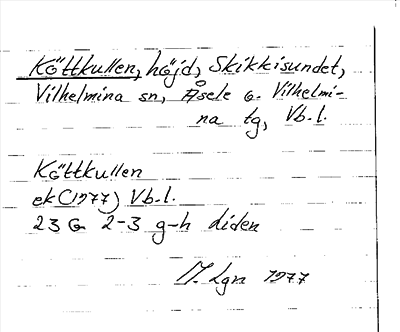 Köttkullen, höjd, Skikkisundet,
Vilhelmina sn, Åsele o. Vilhelmi-
na tg, Vb.l.
Köttkullen
ek (1977) Vb.l.
23 G 2-3 g-h diden
M. Lgn 1977